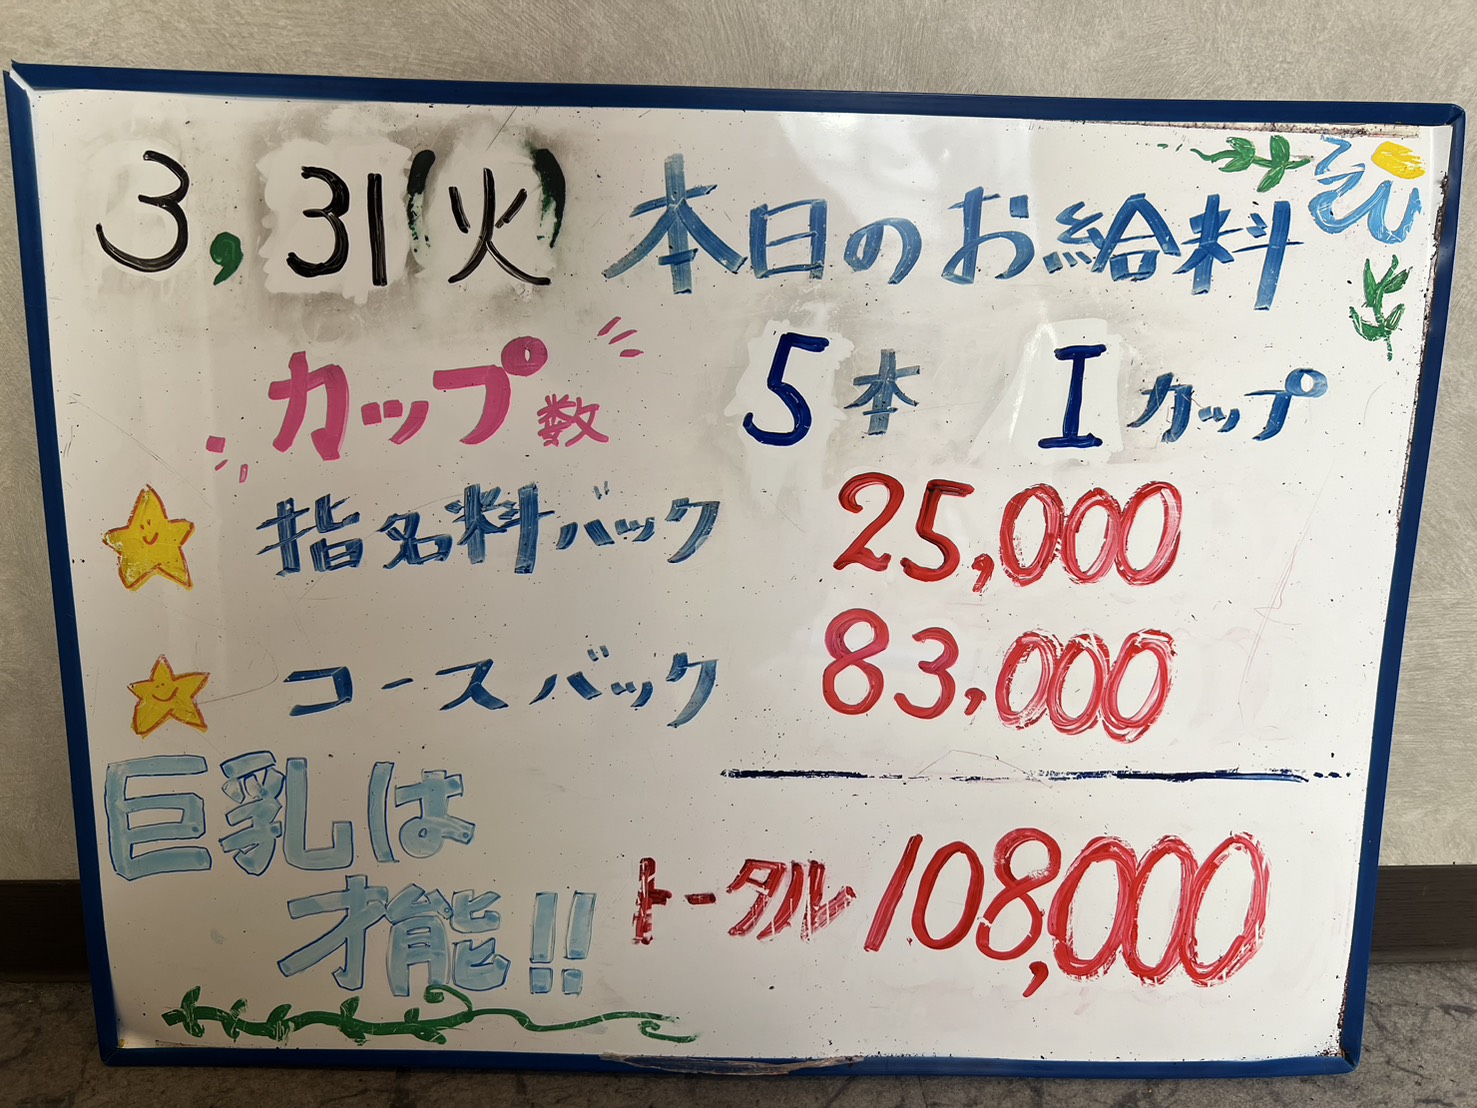 3,31(火) 本日のお給料
カップ数 5本 Iカップ
指名料バック 25,000
コースバック 83,000
巨乳は
才能!!
トータル 108,000